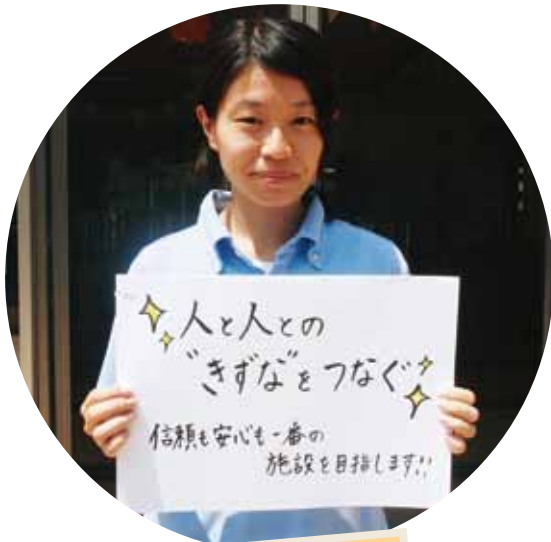 人と人との
"きずな"をつなぐ
信頼も安心も一番の
施設を目指します!!